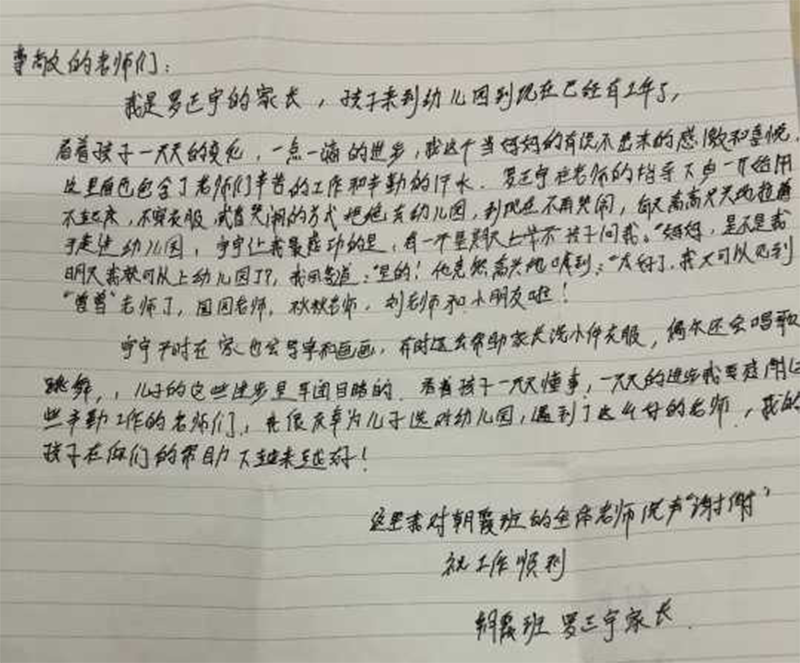 尊敬的老师们：
我是罗正宇的家长，孩子来到幼儿园到现在已经有2年了，
看着孩子一天天的变化，一点一滴的进步，我这个当妈妈的有说不出来的感激和喜悦，
这里面包含了老师们辛苦的工作和辛勤的汗水．罗正宇在老师的指导下由一开始用
不起床，不穿衣服，或者哭闹的方式拒绝去幼儿园，到现在不再哭闹，每天高高兴兴地拉着
手走进幼儿园，宇宇让我最感动的是，有一个星期天上午孩子问我。“妈妈，是不是我
明天我就可以上幼儿园了？，我回答道：“是的！他竟然高兴地喊到：“太好了，我又可以见到
“曾曾”老师了，园园老师，秋秋老师，刘老师和小朋友啦！
宇宇平时在家也会写字和画画，有时还会帮助家长洗小件衣服，偶尔还会唱歌
跳舞，，儿子的这些进步是有闭目睹的．看着孩子一天天懂事，一天天的进步我要感谢
些辛勤工作的老师们，我很庆幸为儿子选对幼儿园，遇到了这么好的老师，我的
孩子在你们的帮助下越来越好！
这里我对朝霞班的全体老师说声“谢谢”
祝工作顺利
朝霞班 罗正宇家长．